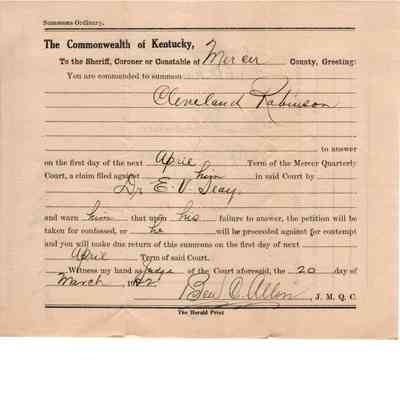 Summons Ordinary.
The Commonwealth of Kentucky,
To the Sheriff, Coroner or Constable of Mercer County, Greeting:
You are commanded to summon
Cleveland Robinson
to answer
on the first day of the next April Term of the Mercer Quarterly
Court, a claim filed against him in said Court by
Dr E. V. Seay
and warn him that upon his failure to answer, the petition will be
taken for confessed, or he will be proceeded against for contempt
and you will make due return of this summons on the first day of next
April Term of said Court.
Witness my hand as Judge of the Court aforesaid, the 20 day of
March
Ben C. Allin, J. M. Q. C.
The Herald Print